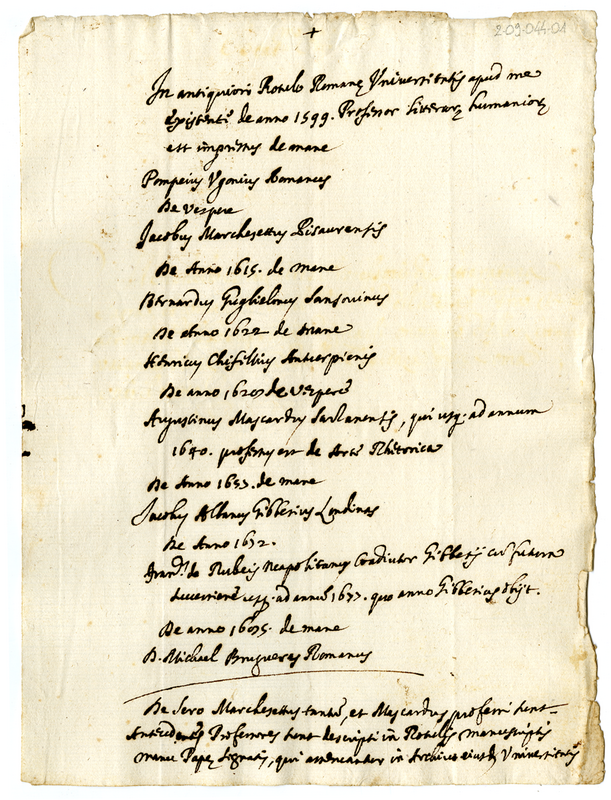 +
2-09-044-01
In antiquiori Rotulo Romanę Vniuersitatis apud me
Existenti de anno 1599. Professor litterarũ humaniorũ
est imprimis de mane
Pompeius Vgonius Romanus
De Vespere
Jacobus Marchesettus Pisaurensis
De Anno 1615. de mane
Bernardus Guglielonus Sansouinus
De Anno 1622 de mane
Henricus Chifillius Antuerpiensis
De anno de Vespere
Augustinus Mascardus Sarzanensis, qui usq. ad annum
1640. professus est de Arte Rhetorica
De Anno 1653. de mane
Jacobus Albanus Gibbesius Londinas
De Anno 1672.
de Rubeis Neapolitanus Coadiutor Gibbesij cũ futura
usq. ad annũ 1677. quo anno Gibbesius obijt.
De anno de mane
D. Michael Brugueres Romanus
De Sero Marchesettus tantũ, et Mascardus professi sunt
Antecedentes Professores sunt descripti in Rotulis manuscriptis
manu Papę signatis, qui in Archiuio eiusd. Vniuersitatis